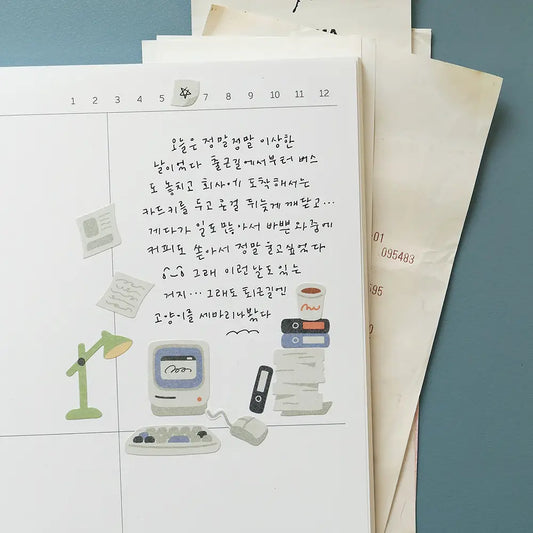 1 2 3 4 5 7 8 9 10 11 12
오늘은 정말정말 이상한
날이었다 출근길에서부터 버스
도 놓치고 회사에 도착해서는
카드키를 두고 온걸 뒤늦게 깨닫고...
게다가 일도 많아서 바쁜 와중에
커피도 쏟아서 정말 울고싶었다
그래 이런날도 있는
거지... 그래도 퇴근길엔
고양이를 세마리나 봤다
01
095483
595